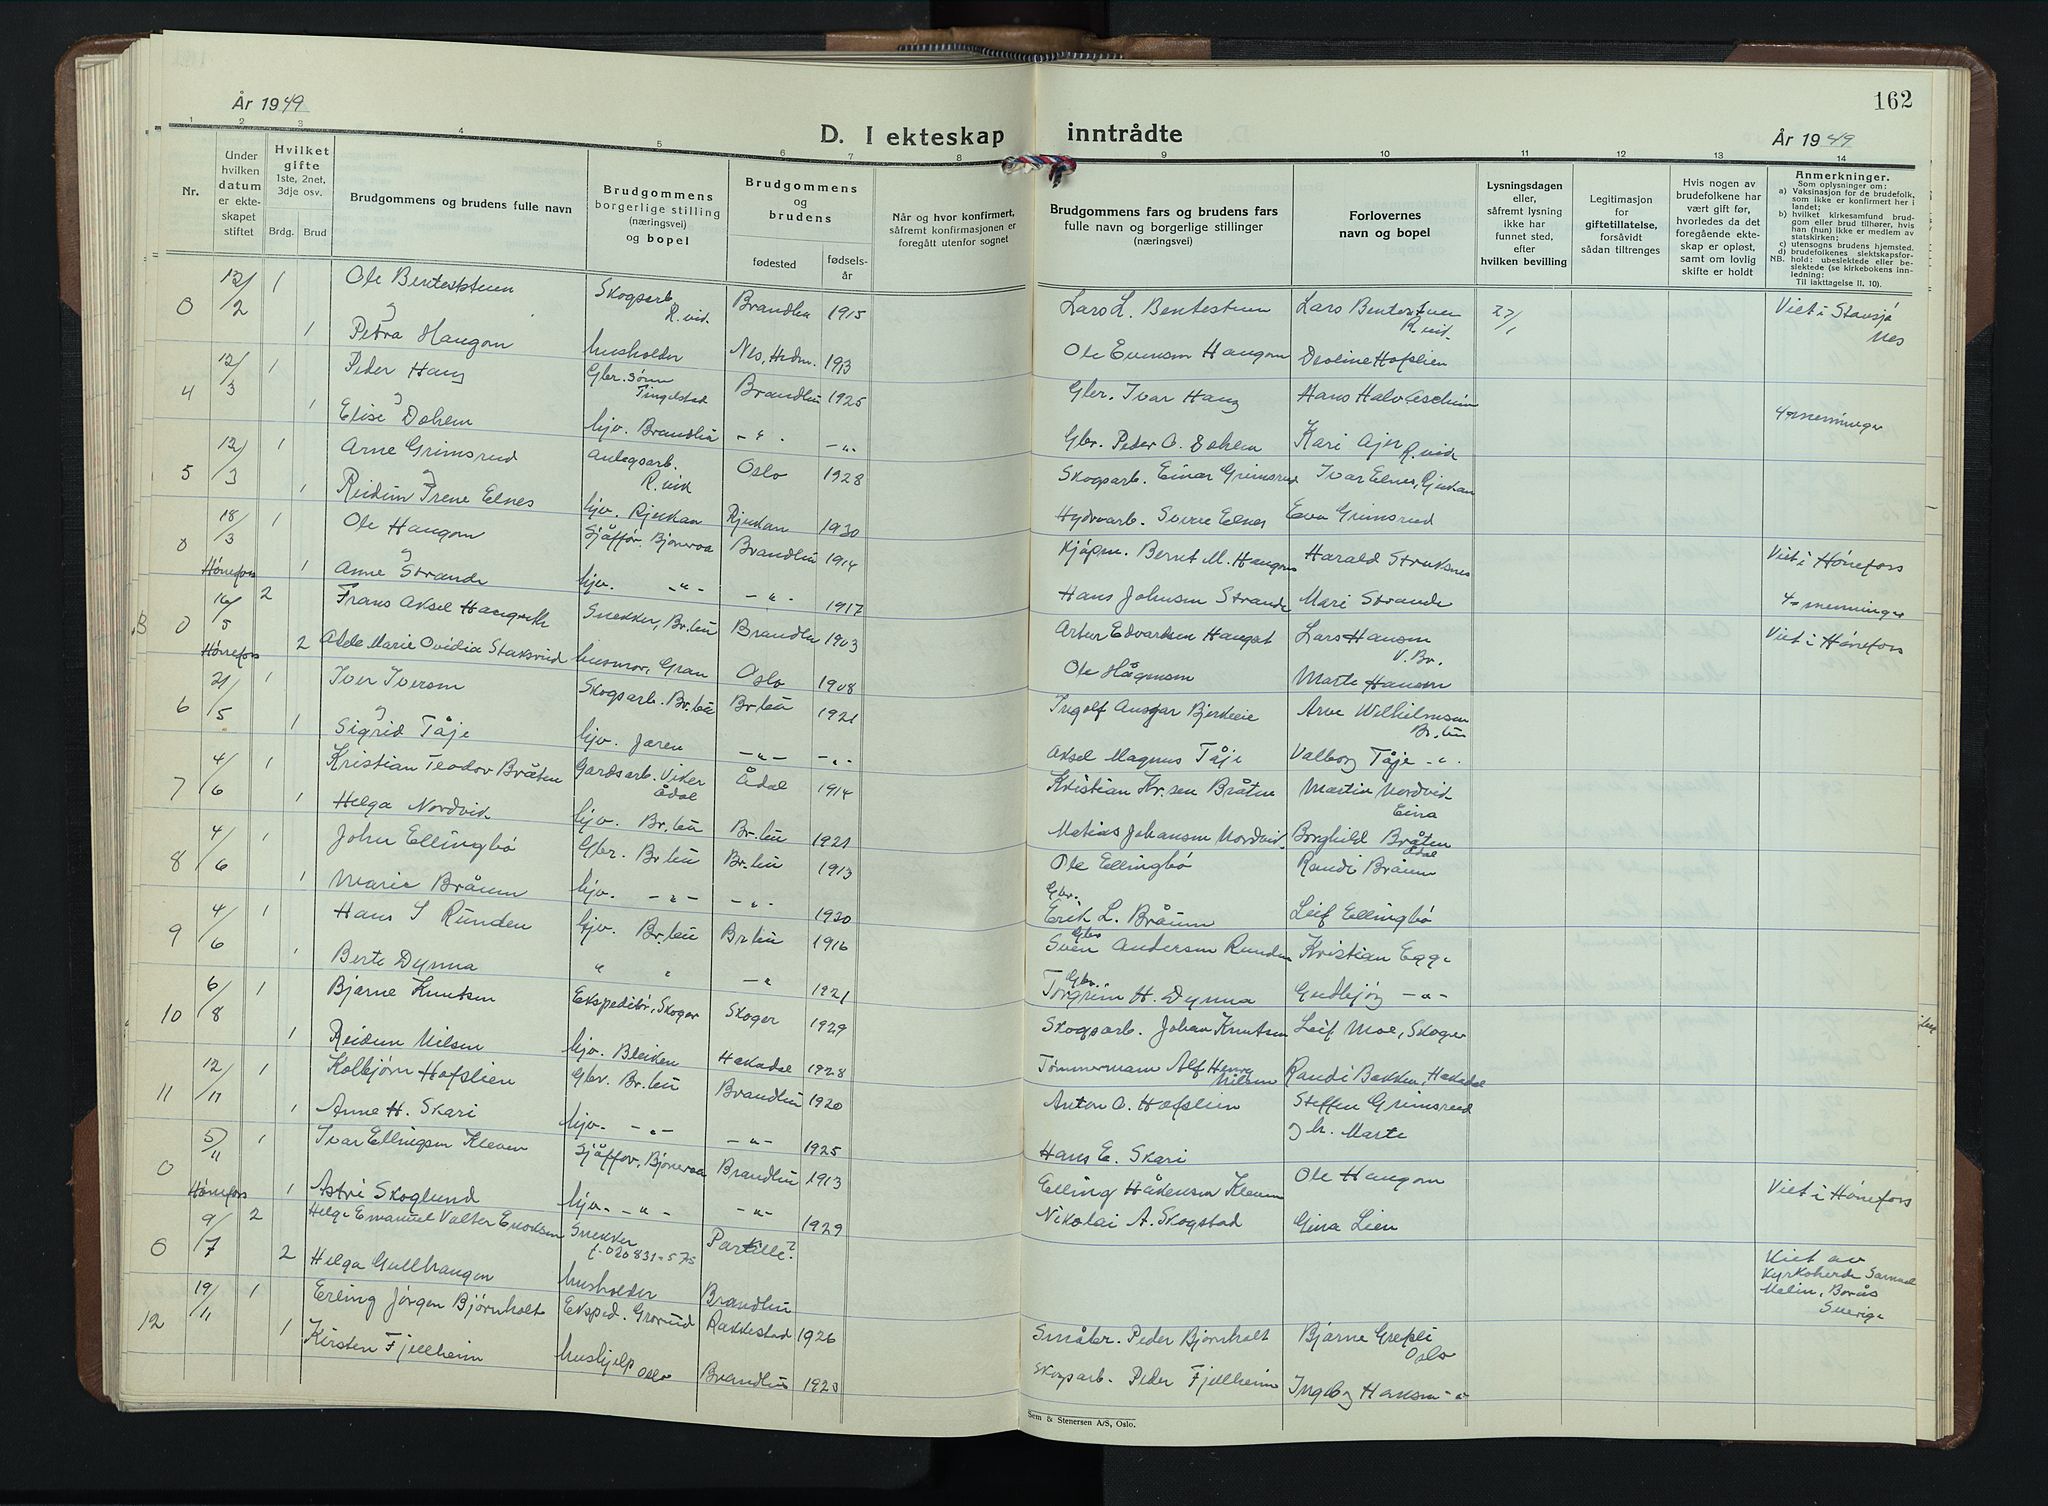 År 1949
162
D. I ekteskap inntrådte
År 1949
1 2 3 4 5 6 7 8 9 10 11 12 13 14
Nr.
Under
hvilken
datum
er ekte-
skapet
stiftet
Hvilket
gifte
1ste, 2net,
3dje osv.
Brdg. Brud
Brudgommens og brudens fulle navn
Brudgommens
borgerlige stilling
(næringsvei)
og bopel
Brudgommens
og
brudens
fødested
fødsels-
år
Når og hvor konfirmert,
såfremt konfirmasjonen er
foregått utenfor sognet
Brudgommens fars og brudens fars
fulle navn og borgerlige stillinger
(næringsvei)
Forlovernes
navn og bopel
Lysningsdagen
eller,
såfremt lysning
ikke har
funnet sted,
efter
hvilken bevilling
Legitimasjon
for
giftetillatelse,
forsåvidt
sådan tiltrenges
Hvis nogen av
brudefolkene har
vært gift før,
hvorledes da det
foregående ekte-
skap er opløst,
samt om lovlig
skifte er holdt
Anmerkninger.
Som oplysninger om:
a) Vaksinasjon for de brudefolk,
som ikke er konfirmert her i
landet;
b) hvilket kirkesamfund brud-
gom eller brud tilhører, hvis
han (hun) ikke er medlem av
statskirken;
c) utensogns brudens hjemsted.
d) brudefolkenes slektskapsfor-
NB. hold: ubeslektede eller be-
slektede (se kirkebokens inn-
ledning:
Til iakttagelse II. 10).
0 12/2 1 Ole Bentestuen Skogsarb. R.vid. Brandbu 1915 Lars L. Bentestuen Lars Bentestuen R.vid. 27/1 Viet i Stavsjø Nes
1 Petra Haugom husholder Nes, Hedm. 1913 Ole Evensen Haugom Deoline Hofslien
4 12/3 1 Peder Haug Gbr. sønn Tingelstad Brandbu 1925 Gbr. Ivar Haug Hans Halv
1 Elise Dohem hjv. Brandbu - " - - " - Gbr. Peder O. Dohem Kari Ajer R.vid 4-menninger
5 12/3 1 Arne Grimsrud anlegsarb. R.vid Oslo 1928 Skogsarb. Einar Grimsrud Ivar Elnes, Rjukan
1 Reidun Irene Elnes hjv. Rjukan Rjukan 1930 Hydroarb. Sverre Elnes Eva Grimsrud
0 18/3 1 Ole Haugom Sjåffør, Bjoneroa Brandbu 1914 Kjøpm. Bernt M. Haugom Harald Struksnes Viet i Hønefoss
Hønefoss 1 Anne Strande hjv. - " - - " - 1917 Hans Johnsen Strande Mari Strande 4-menninger
B 0 16/5 2 Frans Aksel Haugerth Snekker, Br.bu Brandbu 1903 Artur Edvardsen Haugat Lars Hansen V. Br. Viet i Hønefoss
Hønefoss 2 Alde Marie Ovidia Staksrud husmor, Gran Oslo 1908 Ole Hågensen Marte Hansen
6 21/5 1 Iver Iversen Skogsarb. Br.bu Br.bu 1921 Ingolf Ansgar Bjerkeie Arve Wilhelmsen Br.bu
1 Sigrid Tåje hjv. Jaren - " - - " - Aksel Magnus Tåje Valborg Tåje - " -
7 4/6 1 Kristian Teodor Bråten Gardsarb. Viker Ådal Ådal 1914 Kristian Kr.sen Bråten Martin Nordvid Eina
1 Helga Nordvid hjv. Br.bu Br.bu 1921 Matias Johansen Nordvid Borghild Bråten Ådal
8 4/6 1 John Ellingbø Gbr. Br.bu Br.bu 1913 Ole Ellingbø Randi Bråum
1 Marie Bråum hjv. - " - - " - 1920 Gbr. Erik L. Bråum Leif Ellingbø
9 4/6 1 Hans S Runden hjv. Br.bu Br.bu 1916 Gbr Sven Andersen Runden Kristian Egge
1 Berte Dynna " " - " 1921 Gbr. Torgrim H. Dynna Gudbjørg - " -
10 6/8 1 Bjarne Knutsen Ekspeditør, Skoger Skoger 1929 Skogsarb. Johan Knutsen Leif Moe, Skoger
1 Reidun Nilsen hjv. Bleiken Hakadal 1928 Tømmermann Alf Henry Nilsen Randi Bakken, Hakadal
11 12/11 1 Kolbjørn Hofslien Gbr. Br.bu Brandbu 1920 Anton O. Hofslien Steffen Grimsrud
1 Anne H. Skari hjv. - " - - " - 1925 Hans E. Skari Marte
0 5/11 1 Ivar Ellingsen Kleven Sjåffør, Bjoneroa Brandbu 1913 Elling Håkensen Kleven Ole Haugom Viet i Hønefoss
Hønefoss 1 Astri Skoglund hjv. - " - - " - 1929 Nikolai A. Skogstad Gina Lien
0 9/7 2 Helge Emanuel Valter Enoksen Snekker f. 020831-575 Partille? Viet av
Kyrkoherde Samuel
Melin, Borås
Sverige
2 Helga Gullhaugen husholder Brandbu
12 19/11 1 Erling Jørgen Bjørnholt Eksped. Grorud Rakkestad 1926 Småbr. Peder Bjørnholt Bjarne Grefsli Oslo
1 Kirsten Fjellheim hushjelp Oslo Brandbu 1920 Skogsarb. Peder Fjellheim Ingebg Hansen - " -
Sem & Stenersen A/S, Oslo.